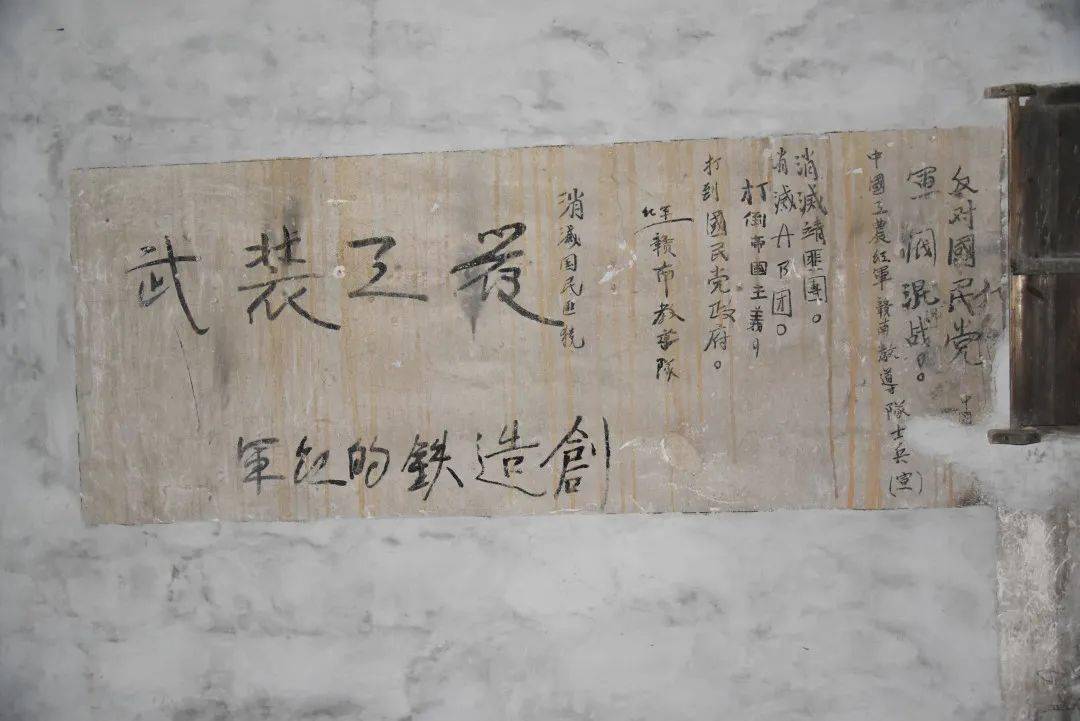 反对國民党
軍阀混战。
中國工農红軍贛南教導隊士兵(宣)
消滅靖匪團。
消滅AB团。
打倒帝國主義
打到國民党政府。
红軍贛南教導隊
消滅国民匪党
武装工農
創造鉄的红軍